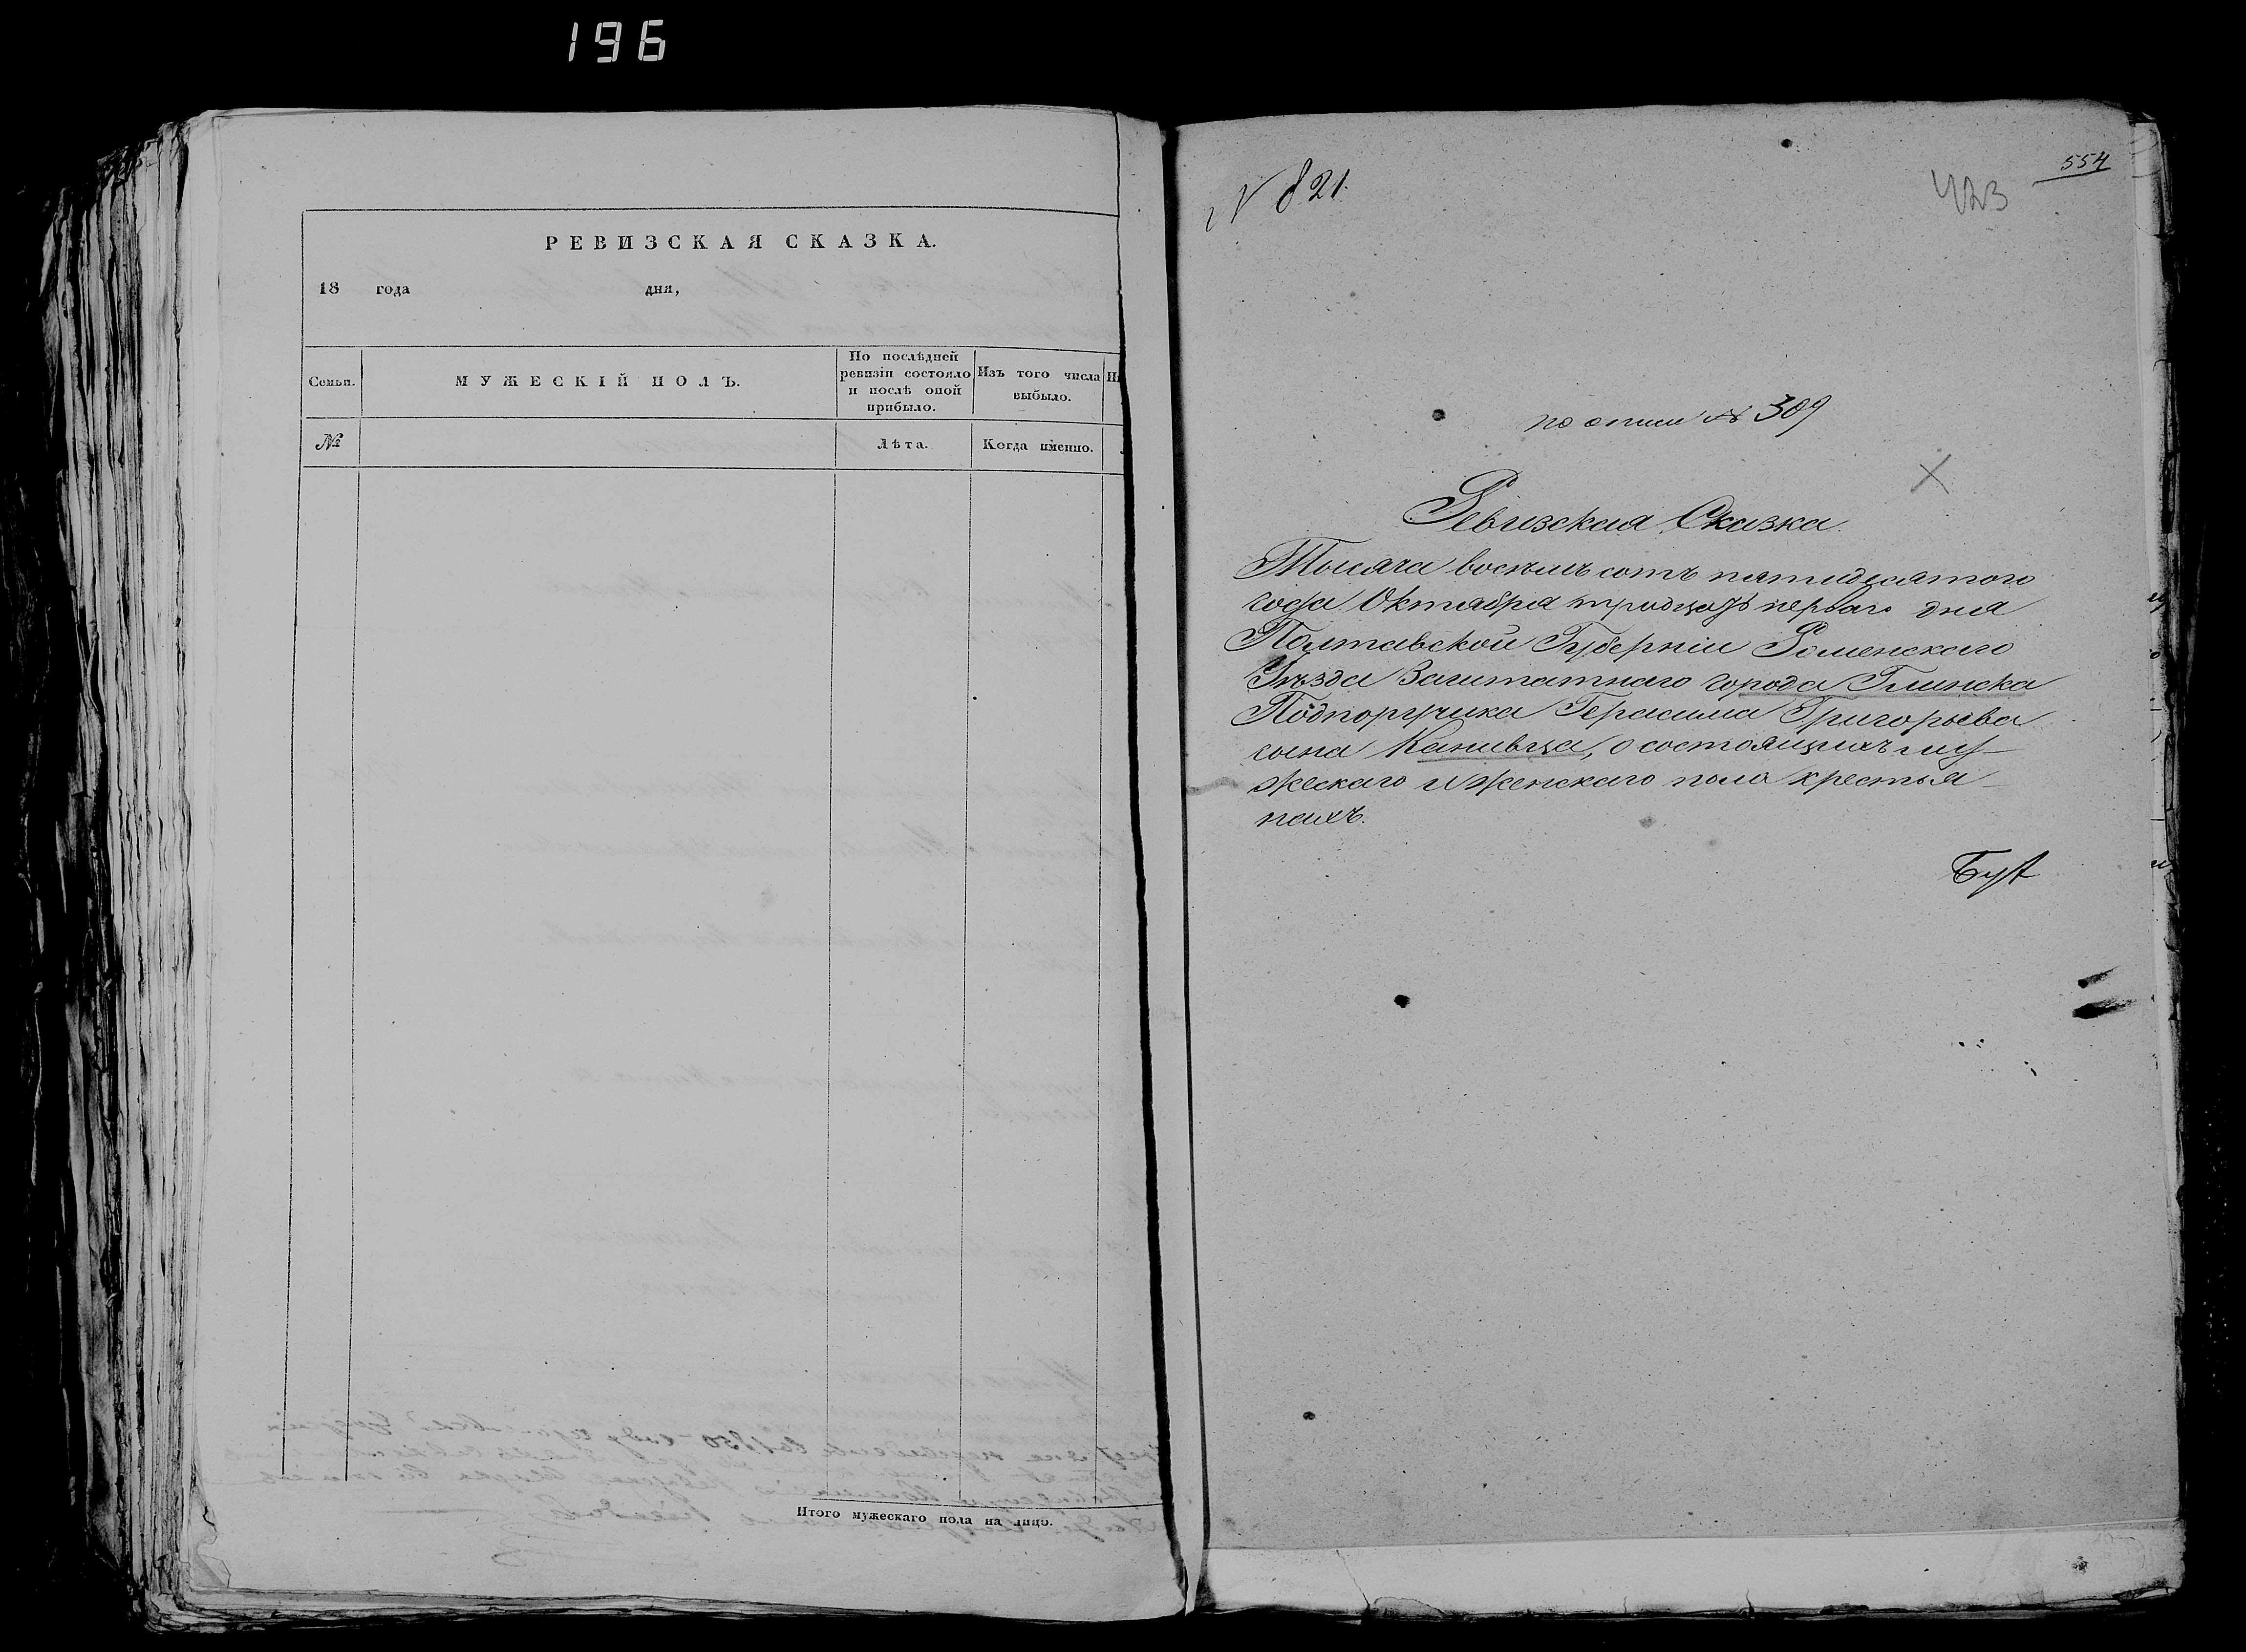 196
РЕВИЗСКАЯ СКАЗКА.
18 года дня,
Семьи.
МУЖЕСКІЙ ПОЛЪ.
По послѣдней
ревизіи состояло
и послѣ оной
прибыло.
Изъ того числа
выбыло.
№
Лѣта.
Когда именно.
Итого мужескаго пола на лицо.
N 821.
554
423
по описи № 309
Ревизская Сказка.
Тысяча восѣмъ сотъ пятидесятого
года Октября тридцать перваго дня
Полтавской Губерніи Роменского
Уѣзда Заштатнаго города Глинска
Подпоручика Герасима Григорьева
сына Канивца, о состоящихъ му-
жескаго и женскаго пола крестья-
нахъ.